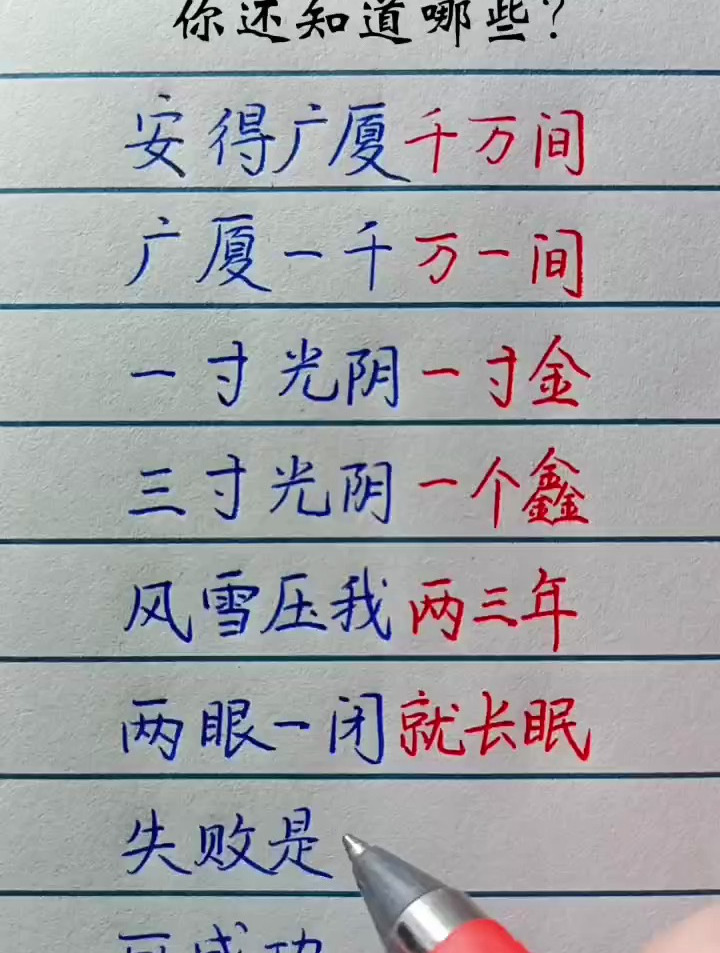 你还知道哪些?
安得广厦千万间
广厦一千万一间
一寸光阴一寸金
三寸光阴一个鑫
风雪压我两三年
两眼一闭就长眠
失败是
可成功